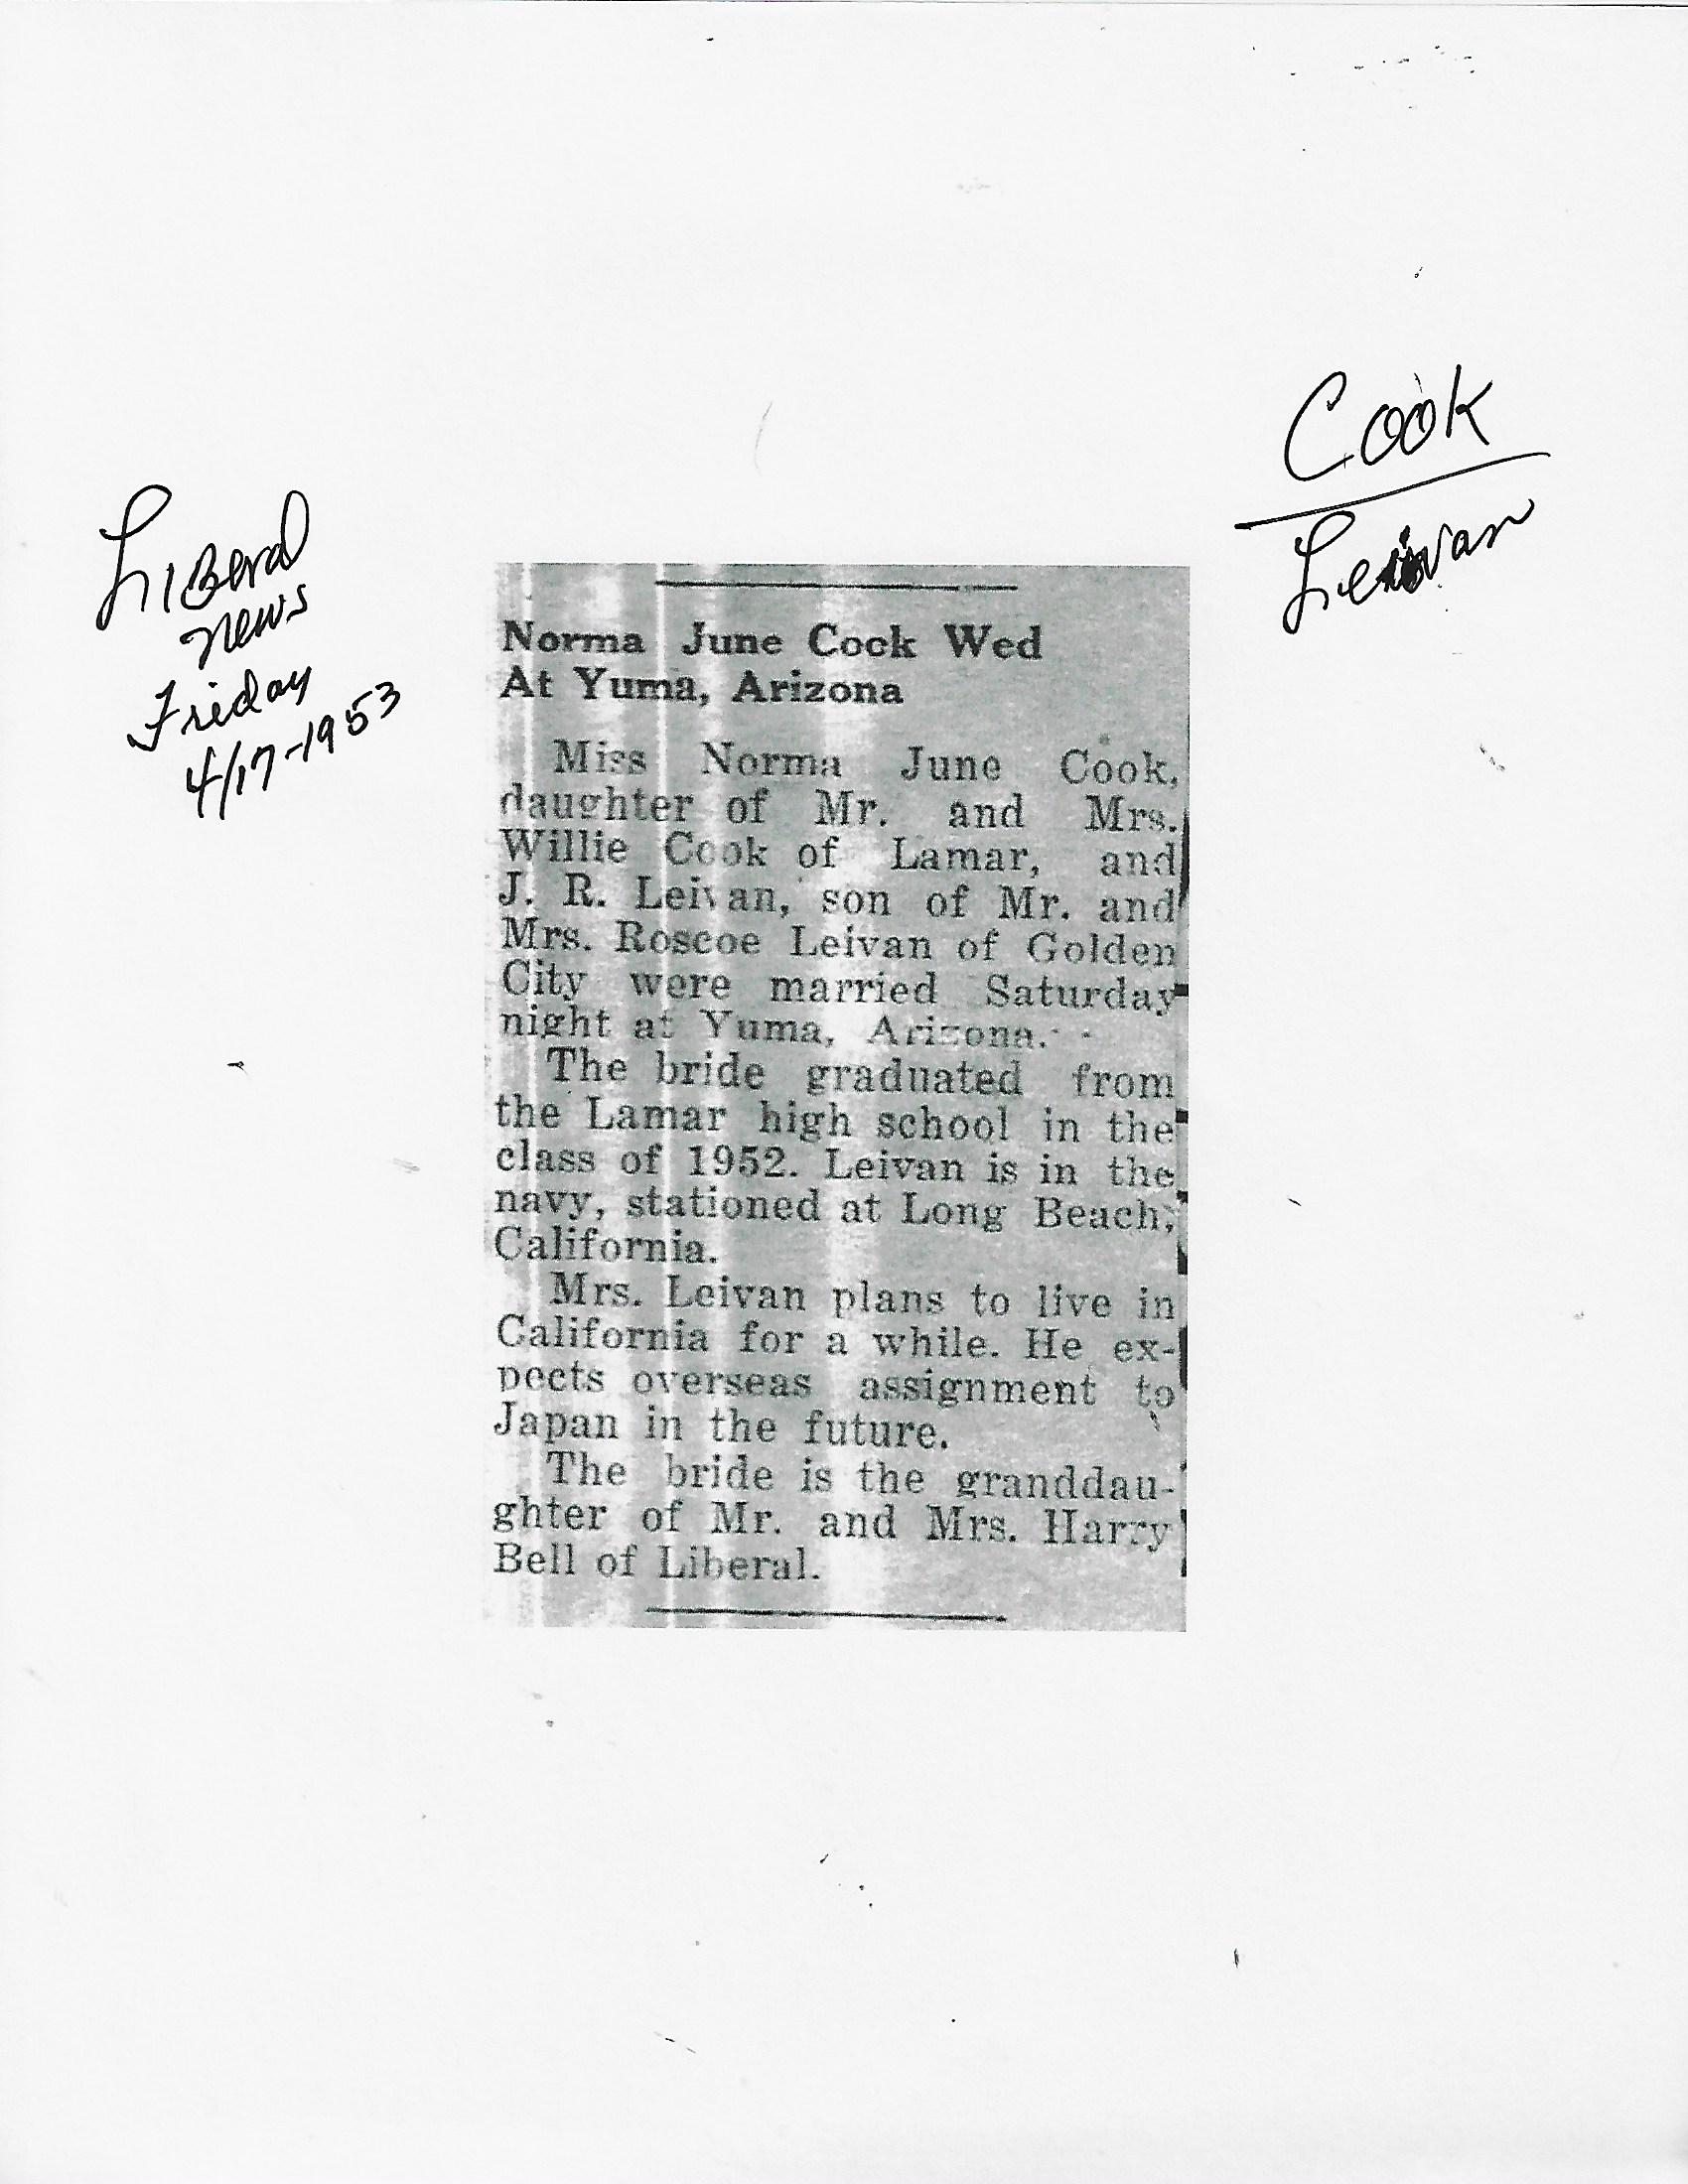 Cook
Leivan
Liberal
News
Friday
4/17-1953
Norma June Cock Wed
At Yuma, Arizona
Miss Norma June Cook,
daughter of Mr. and Mrs.
Willie Cook of Lamar, and
J. R. Leivan, son of Mr. and
Mrs. Roscoe Leivan of Golden
City were married Saturday
night at Yuma, Arizona.
The bride graduated from
the Lamar high school in the
class of 1952. Leivan is in the
navy, stationed at Long Beach,
California.
Mrs. Leivan plans to live in
California for a while. He ex-
pects overseas assignment to
Japan in the future.
The bride is the granddau-
ghter of Mr. and Mrs. Harry
Bell of Liberal.